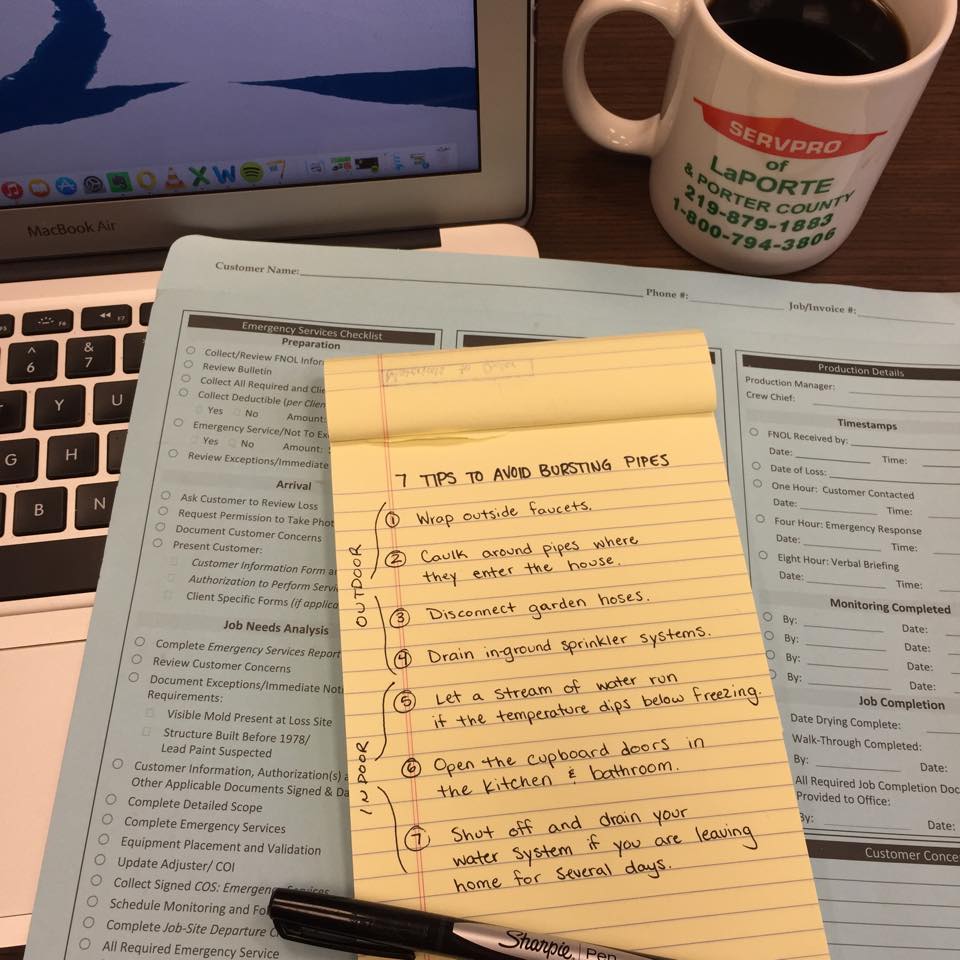 MacBook Air
SERVPRO
of
LaPORTE
& PORTER COUNTY
219-879-1883
1-800-794-3806
F6
F7
^
6
&
7
Y
U
G
H
B
N
Customer Name:
Phone #:
Job/Invoice #:
Emergency Services Checklist
Preparation
Collect/Review FNOL
Review Bulletin
Collect All Required and
Collect Deductible (per
Yes No Amount:
Emergency Service/Not To
Yes No Amount:
Review Exceptions/Immediate
Arrival
Ask Customer to Review Loss
Request Permission to Take
Document Customer Concerns
Present Customer:
Customer Information Form
Authorization to Perform
Client Specific Forms (if
Job Needs Analysis
Complete Emergency Services Report
Review Customer Concerns
Document Exceptions/Immediate
Requirements:
Visible Mold Present at Loss Site
Structure Built Before 1978/
Lead Paint Suspected
Customer Information, Authorization(s)
Other Applicable Documents Signed &
Complete Detailed Scope
Complete Emergency Services
Equipment Placement and Validation
Update Adjuster/ COI
Collect Signed COS: Emergency Services
Schedule Monitoring and
Complete Job-Site Departure
All Required Emergency Service
7 TIPS TO AVOID BURSTING PIPES
OUTDOOR
① Wrap outside faucets.
② Caulk around pipes where
they enter the house.
③ Disconnect garden hoses.
④ Drain in-ground sprinkler systems.
INDOOR
⑤ Let a stream of water run
if the temperature dips below freezing.
⑥ Open the cupboard doors in
the kitchen & bathroom.
⑦ Shut off and drain your
water system if you are leaving
home for several days.
Sharpie. Pen
Production Details
Production Manager:
Crew Chief:
Timestamps
FNOL Received by:
Date: Time:
Date of Loss:
One Hour: Customer Contacted
Date: Time:
Four Hour: Emergency Response
Date: Time:
Eight Hour: Verbal Briefing
Date: Time:
Monitoring Completed
By: Date:
By: Date:
By: Date:
By: Date:
Job Completion
Date Drying Complete:
Walk-Through Completed:
By: Date:
All Required Job Completion
Provided to Office:
By: Date:
Customer